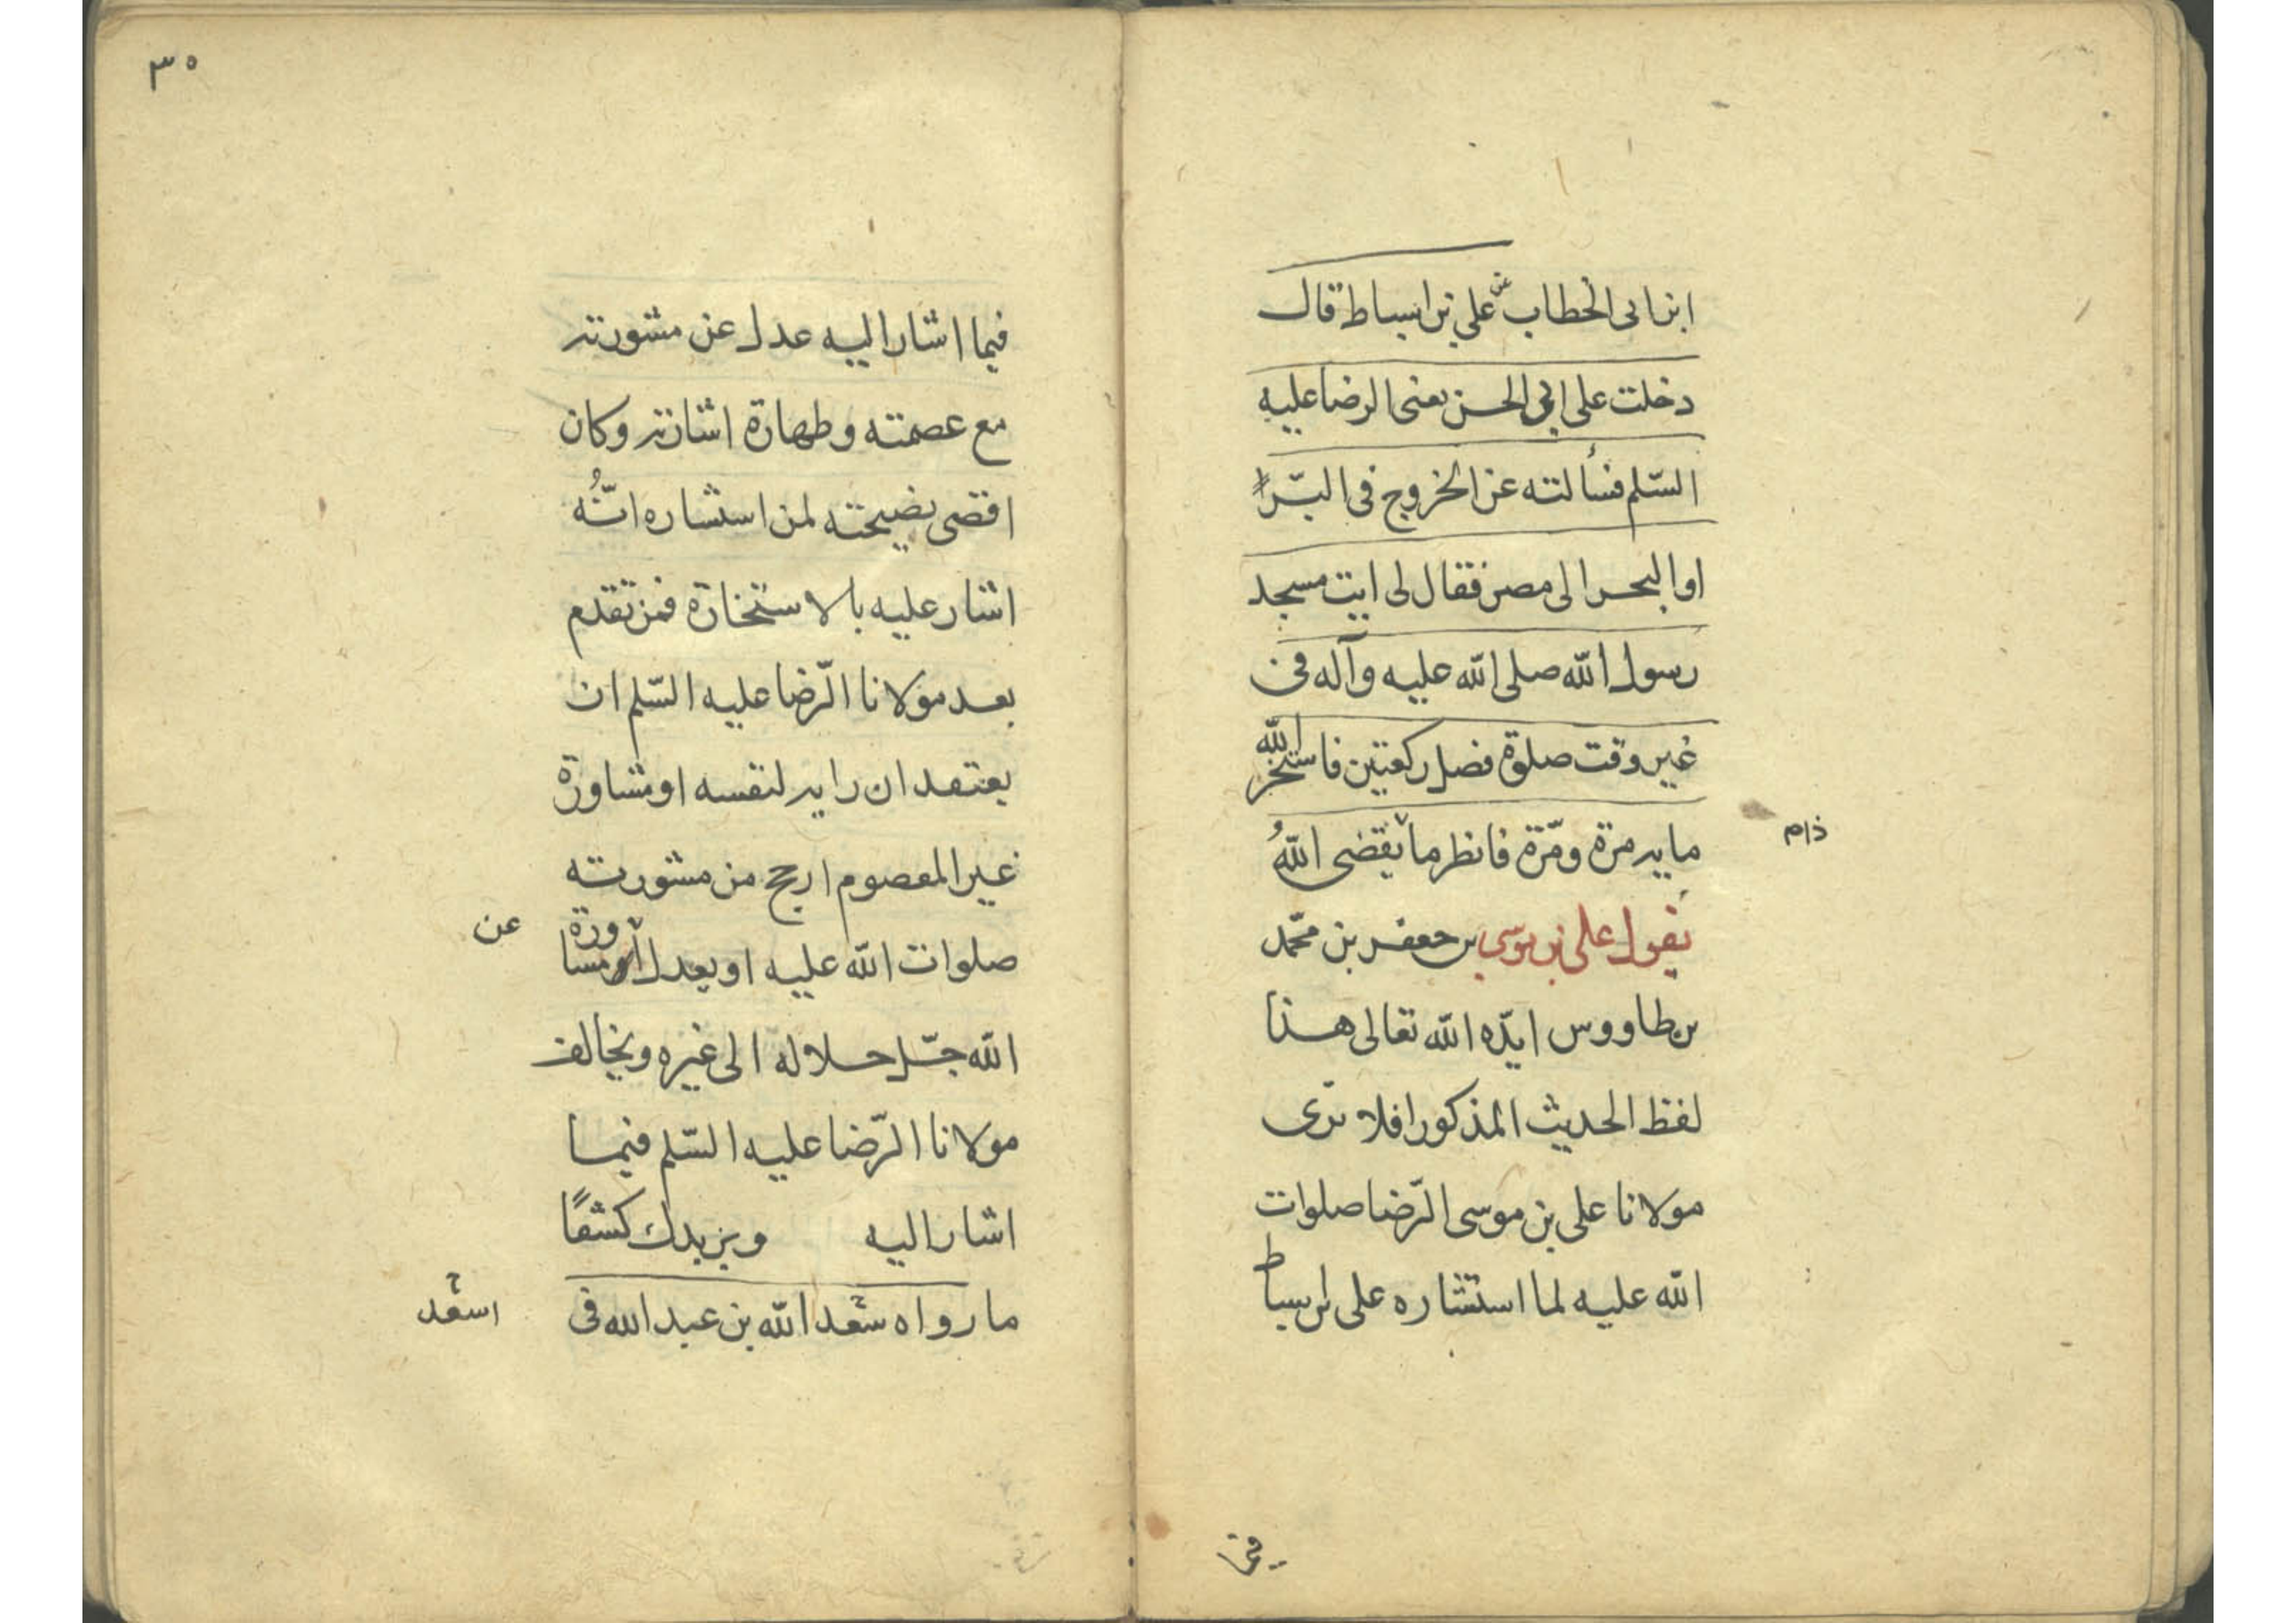 ابن ابى الخطاب عن على بن اسباط قال
دخلت على ابى الحسن يعنى الرضا عليه
السّلم فسألته عن الخروج فى البَرّ
او البحر الى مصر فقال لى ايت مسجد
رسول الله صلى الله عليه وآله فى
غير وقت صلوة فصل ركعتين فاستخر الله
ماية مرة ومرّة فانظر ما يقضى اللهُ
يقول على بن موسى بن جعفر بن محمّد
بن طاووس ايدّه الله تعالى هذا
لفظ الحديث المذكور افلا ترى
مولانا على بن موسى الرّضا صلوات
الله عليه لما استشاره على بن اسباط
فيما
٣٥
فيما اشار اليه عدل عن مشورته
مع عصمته وطهارة اشارته وكان
اقصى نصيحته لمن استشاره انّهُ
اشار عليه بالاستخارة فمن تقدم
بعد مولانا الرّضا عليه السّلم ان
يعتقد ان رايه لنفسه او مشاورة
غير المعصوم ارجح من مشورته
صلوات الله عليه او يعدل مشاورة
عن
الله جلّ جلاله الى غيره ويخالف
مولانا الرّضا عليه السّلم فيما
اشار اليه ويزيدك كشفًا
ما رواه سعد الله بن عبد الله فى
اسعد